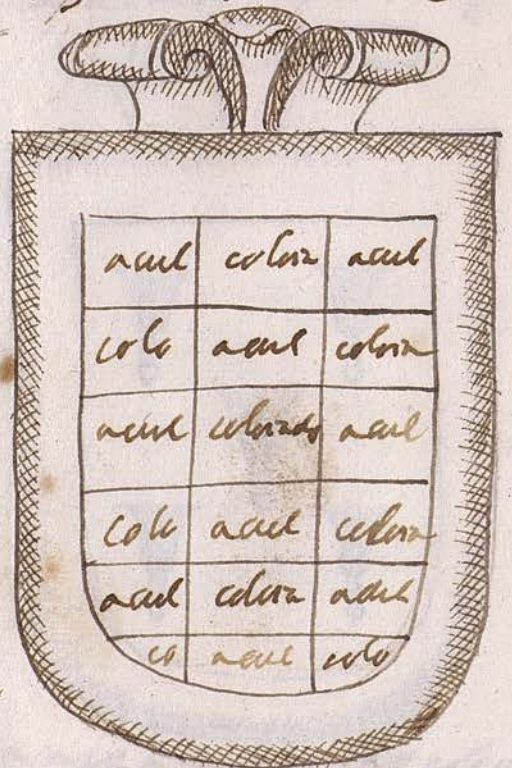 acul colora acul
colo acul colora
acul colorado acul
colo acul colora
acul colora acul
co acul colo